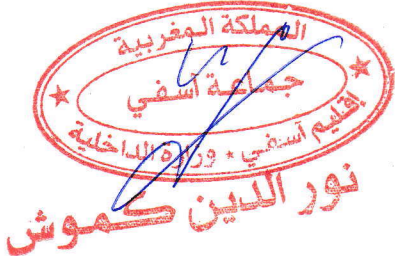 المملكة المغربية
جماعة آسفي
إقليم آسفي * وزارة الداخلية
نور الدين كموش